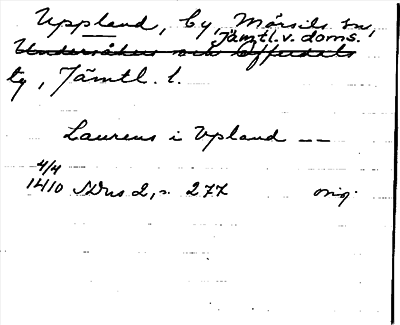 Uppland, by, Mörsils sn,
Jämtl. v. doms.
Undersåkers och Offerdals
tg, Jämtl. l.
Laurens i Vpland --
4/4
1410 SDns 2, s. 277 orig.